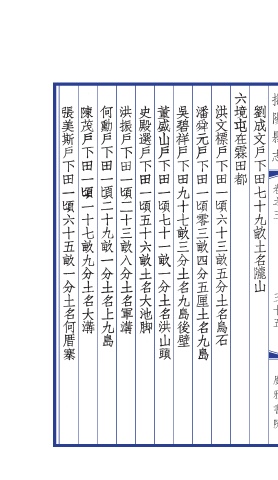 揭陽縣志
卷之三
三十五
劉成文戶下田七十九畝土名瀧山
六境屯在霖田都
洪文標戶下田一頃六十三畝五分土名烏石
潘舜元戶下田一頃零三畝四分五厘土名九島
吳碧祥戶下田九十七畝三分土名九島後壁
董盛山戶下田一頃七十一畝一分土名洪山頭
史殿選戶下田一頃五十六畝土名大池脚
洪振戶下田一頃二十三畝八分土名軍溝
何勳戶下田一頃二十九畝一分土名上九島
陳茂戶下田一頃一十七畝九分土名大溝
張美斯戶下田一頃六十五畝一分土名何厝寨